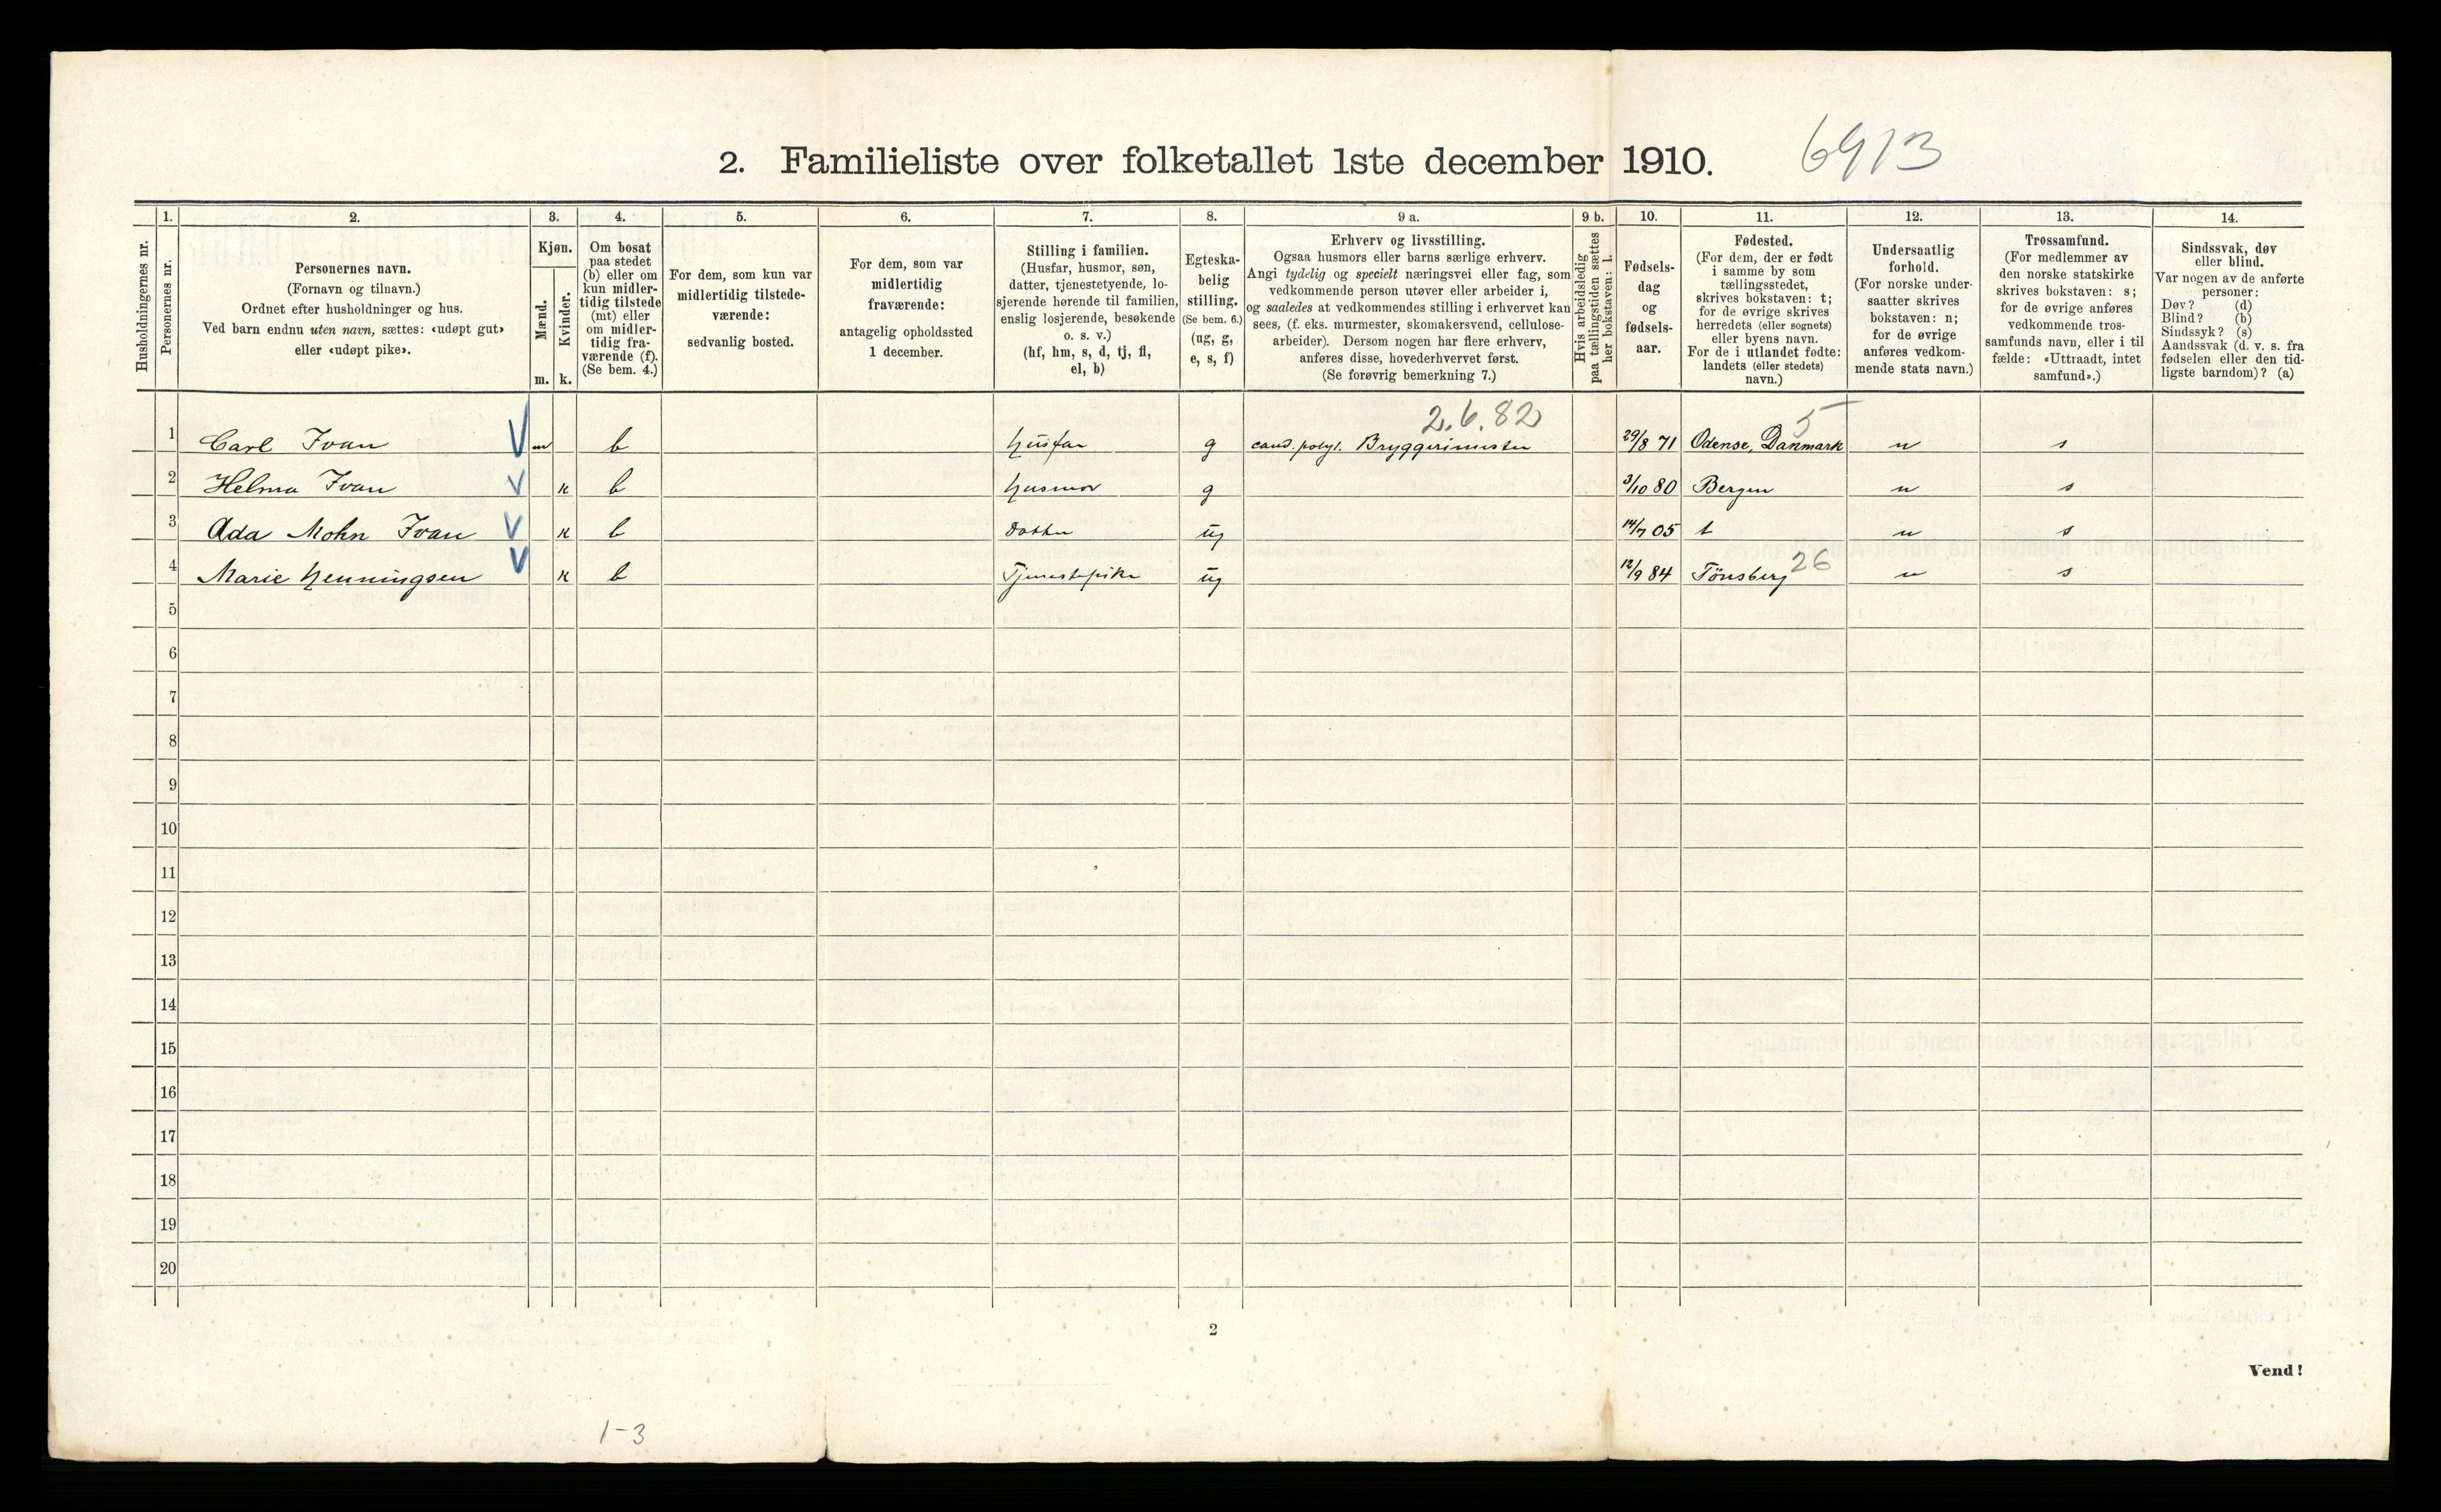 2. Familieliste over folketallet 1ste december 1910. 6913
Husholdningernes nr.
1.
Personernes nr.
2.
Personernes navn.
(Fornavn og tilnavn.)
Ordnet efter husholdninger og hus.
Ved barn endnu uten navn, sættes: «udøpt gut»
eller «udøpt pike».
3.
Kjøn.
Mænd.
m.
Kvinder.
k.
4.
Om bosat
paa stedet
(b) eller om
kun midler-
tidig tilstede
(mt) eller
om midler-
tidig fra-
værende (f).
(Se bem. 4.)
5.
For dem, som kun var
midlertidig tilstede-
værende:
sedvanlig bosted.
6.
For dem, som var
midlertidig
fraværende:
antagelig opholdssted
1 december.
7.
Stilling i familien.
(Husfar, husmor, søn,
datter, tjenestetyende, lo-
sjerende hørende til familien,
enslig losjerende, besøkende
o. s. v.)
(hf, hm, s, d, tj, fl,
el, b)
8.
Egteska-
belig
stilling.
(Se bem. 6.)
(ug, g,
e, s, f)
9 a.
Erhverv og livsstilling.
Ogsaa husmors eller barns særlige erhverv.
Angi tydelig og specielt næringsvei eller fag, som
vedkommende person utøver eller arbeider i,
og saaledes at vedkommendes stilling i erhvervet kan
sees, (f. eks. murmester, skomakersvend, cellulose-
arbeider). Dersom nogen har flere erhverv,
anføres disse, hovederhvervet først.
(Se forøvrig bemerkning 7.)
9 b.
Hvis arbeidsledig
paa tællingstiden sættes
her bokstaven: l.
10.
Fødsels-
dag
og
fødsels-
aar.
11.
Fødested.
(For dem, der er født
i samme by som
tællingsstedet,
skrives bokstaven: t;
for de øvrige skrives
herredets (eller sognets)
eller byens navn.
For de i utlandet fødte:
landets (eller stedets)
navn.)
12.
Undersaatlig
forhold.
(For norske under-
saatter skrives
bokstaven: n;
for de øvrige
anføres vedkom-
mende stats navn.)
13.
Trossamfund.
(For medlemmer av
den norske statskirke
skrives bokstaven: s;
for de øvrige anføres
vedkommende tros-
samfunds navn, eller i til
fælde: «Uttraadt, intet
samfund».)
14.
Sindssvak, døv
eller blind.
Var nogen av de anførte
personer:
Døv? (d)
Blind? (b)
Sindssyk? (s)
Aandssvak (d. v. s. fra
fødselen eller den tid-
ligste barndom)? (a)
2.6.82 5
1 Carl Ivan m b Husfar g cand. polyt. Bryggerimester 29/8 71 Odense, Danmark n s
2 Helma Ivan k b Husmor g 3/10 80 Bergen n s
3 Ada Mohn Ivan k b Datter ug 14/7 05 t n s
4 Marie Henningsen k b Tjenestepike ug 12/9 84 Tönsberg 26 n s
5
6
7
8
9
10
11
12
13
14
15
16
17
18
19
20
2
Vend!
1-3